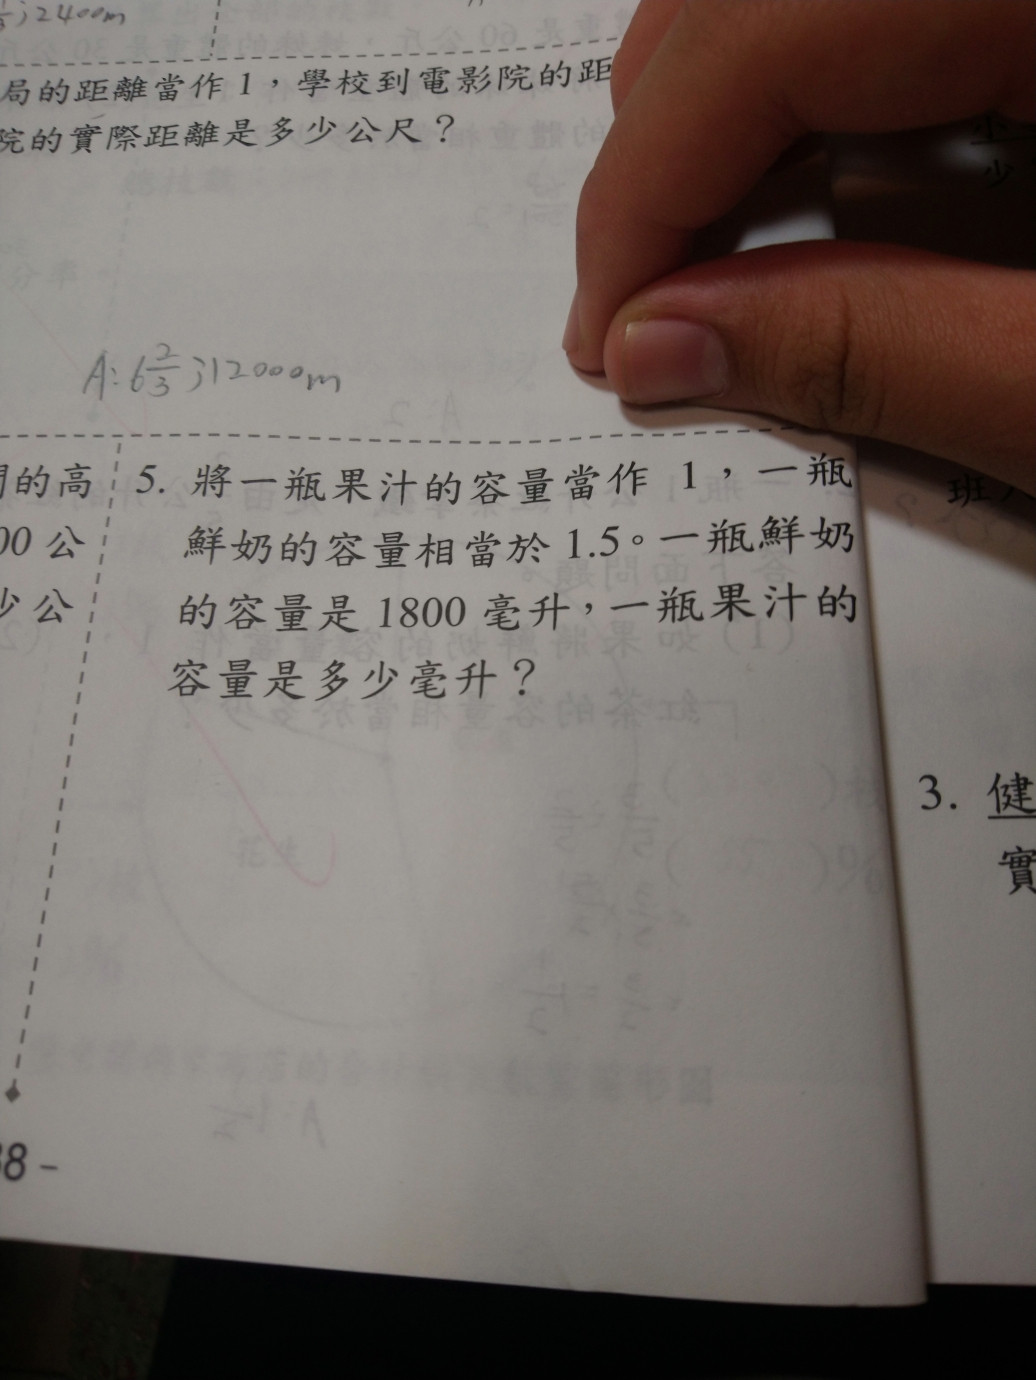 ;2400m
局的距離當作1，學校到電影院的距
院的實際距離是多少公尺？
A: 6 2/3 ; 12000m
的高
00公
少公
5. 將一瓶果汁的容量當作 1，一瓶
鮮奶的容量相當於 1.5。一瓶鮮奶
的容量是 1800 毫升，一瓶果汁的
容量是多少毫升？
38 -
少
班
3. 健
實